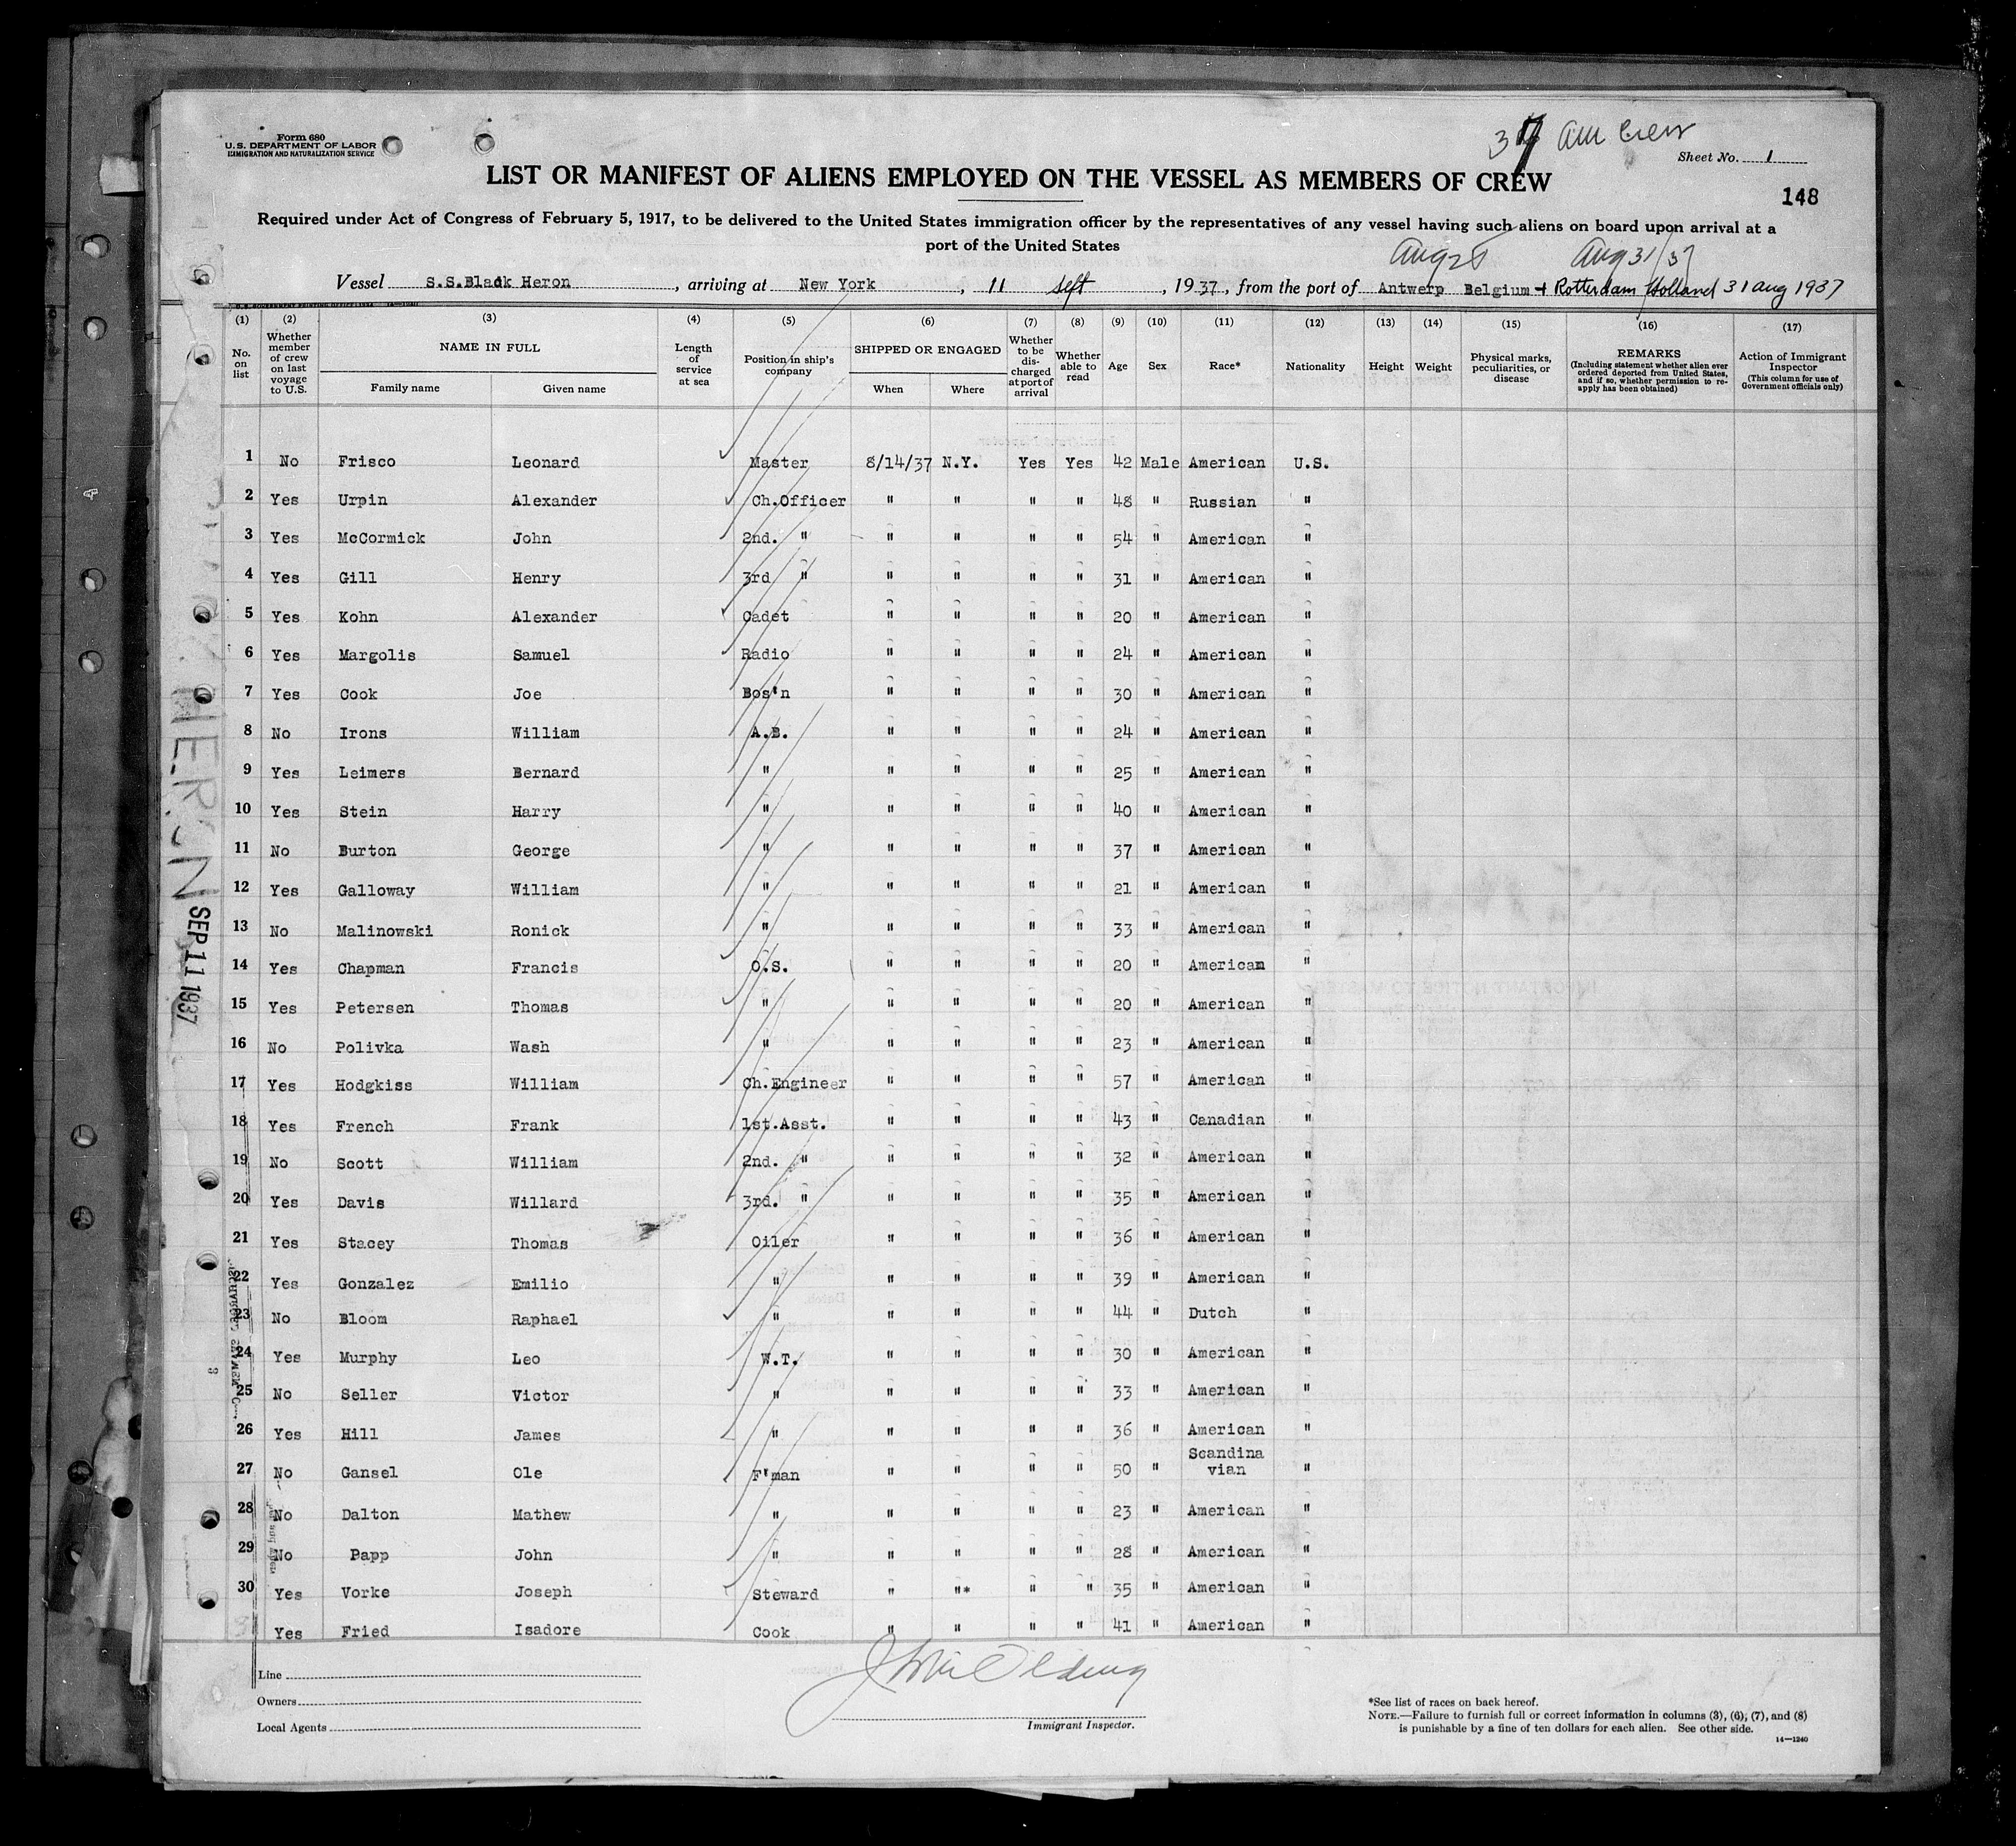 Form 680
U.S. DEPARTMENT OF LABOR
IMMIGRATION AND NATURALIZATION SERVICE
37 Am Crew
Sheet No. 1
LIST OR MANIFEST OF ALIENS EMPLOYED ON THE VESSEL AS MEMBERS OF CREW
148
Required under Act of Congress of February 5, 1917, to be delivered to the United States immigration officer by the representatives of any vessel having such aliens on board upon arrival at a
port of the United States
Aug 28 Aug 31/37
Vessel S.S.Black Heron, arriving at New York, 11 Sept, 1937, from the port of Antwerp Belgium + Rotterdam Holland 31 Aug 1937
(1) (2) (3) (4) (5) (6) (7) (8) (9) (10) (11) (12) (13) (14) (15) (16) (17)
No. on list
Whether member of crew on last voyage to U.S.
NAME IN FULL
Family name Given name
Length of service at sea
Position in ship's company
SHIPPED OR ENGAGED
When Where
Whether to be discharged at port of arrival
Whether able to read
Age Sex Race* Nationality Height Weight
Physical marks, peculiarities, or disease
REMARKS
(Including statement whether alien ever ordered deported from United States, and if so, whether permission to reapply has been obtained)
Action of Immigrant Inspector
(This column for use of Government officials only)
1 No Frisco Leonard Master 8/14/37 N.Y. Yes Yes 42 Male American U.S.
2 Yes Urpin Alexander Ch.Officer " " " " 48 " Russian "
3 Yes McCormick John 2nd. " " " " " 54 " American "
4 Yes Gill Henry 3rd " " " " " 31 " American "
5 Yes Kohn Alexander Cadet " " " " 20 " American "
6 Yes Margolis Samuel Radio " " " " 24 " American "
7 Yes Cook Joe Bos'n " " " " 30 " American "
8 No Irons William A.B. " " " " 24 " American "
9 Yes Leimers Bernard " " " " " 25 " American "
10 Yes Stein Harry " " " " " 40 " American "
11 No Burton George " " " " " 37 " American "
12 Yes Galloway William " " " " " 21 " American "
13 No Malinowski Ronick " " " " " 33 " American "
14 Yes Chapman Francis O.S. " " " " 20 " American "
15 Yes Petersen Thomas " " " " " 20 " American "
16 No Polivka Wash " " " " " 23 " American "
17 Yes Hodgkiss William Ch.Engineer " " " " 57 " American "
18 Yes French Frank 1st.Asst. " " " " 43 " Canadian "
19 No Scott William 2nd. " " " " " 32 " American "
20 Yes Davis Willard 3rd. " " " " " 35 " American "
21 Yes Stacey Thomas Oiler " " " " 36 " American "
22 Yes Gonzalez Emilio " " " " " 39 " American "
23 No Bloom Raphael " " " " " 44 " Dutch "
24 Yes Murphy Leo W.T. " " " " 30 " American "
25 No Seller Victor " " " " " 33 " American "
26 Yes Hill James " " " " " 36 " American "
27 No Gansel Ole F'man " " " " 50 " Scandinavian "
28 No Dalton Mathew " " " " " 23 " American "
29 No Papp John " " " " " 28 " American "
30 Yes Vorke Joseph Steward " "* " " 35 " American "
Yes Fried Isadore Cook " " " " 41 " American "
HERON
SEP 11 1937
Line
Owners
Local Agents
Immigrant Inspector.
*See list of races on back hereof.
NOTE.—Failure to furnish full or correct information in columns (3), (6), (7), and (8)
is punishable by a fine of ten dollars for each alien. See other side.
14—1240